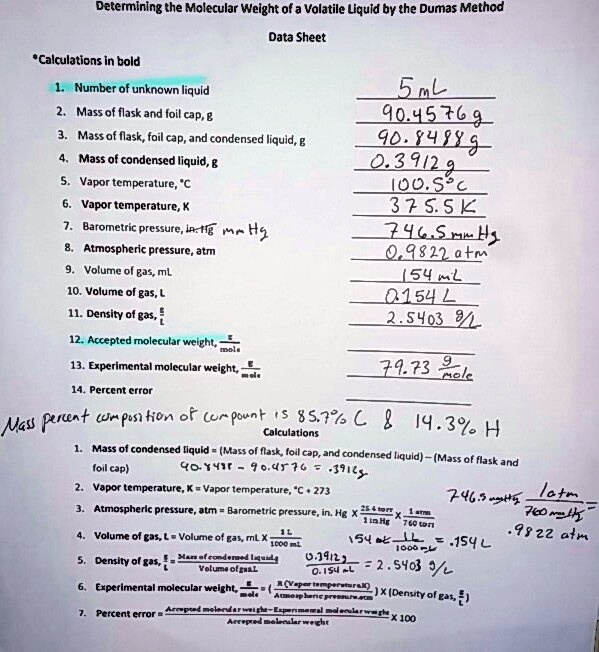 Determining the Molecular Weight of a Volatile Liquid by the Dumas Method
Data Sheet
*Calculations in bold
1. Number of unknown liquid 5 mL
2. Mass of flask and foil cap, g 90.4576 g
3. Mass of flask, foil cap, and condensed liquid, g 90.8488 g
4. Mass of condensed liquid, g 0.3912 g
5. Vapor temperature, °C 100.5°C
6. Vapor temperature, K 375.5 K
7. Barometric pressure, in. Hg mm Hg 746.5 mm Hg
8. Atmospheric pressure, atm 0.9822 atm
9. Volume of gas, mL 154 mL
10. Volume of gas, L 0.154 L
11. Density of gas, g/L 2.5403 g/L
12. Accepted molecular weight, g/mole
13. Experimental molecular weight, g/mole 79.73 g/mole
14. Percent error
Mass percent composition of compount is 85.7% C & 14.3% H
Calculations
1. Mass of condensed liquid = (Mass of flask, foil cap, and condensed liquid) – (Mass of flask and
foil cap) 90.8488 - 90.4576 = .3912g
2. Vapor temperature, K = Vapor temperature, °C + 273
3. Atmospheric pressure, atm = Barometric pressure, in. Hg X 25.4 torr/1 in Hg X 1 atm/760 torr 746.5 mmHg 1atm/760 mmHg = .9822 atm
4. Volume of gas, L = Volume of gas, mL X 1 L/1000 mL 154 mL 1L/1000 mL = .154 L
5. Density of gas, g/L = Mass of condensed liquid,g/Volume of gas,L 0.3912g/0.154 mL = 2.5403 g/L
6. Experimental molecular weight, g/mole = (R (Vapor temperature,K)/Atmospheric pressure,atm) X (Density of gas, g/L)
7. Percent error = Accepted molecular weight-Experimental molecular weight/Accepted molecular weight X 100